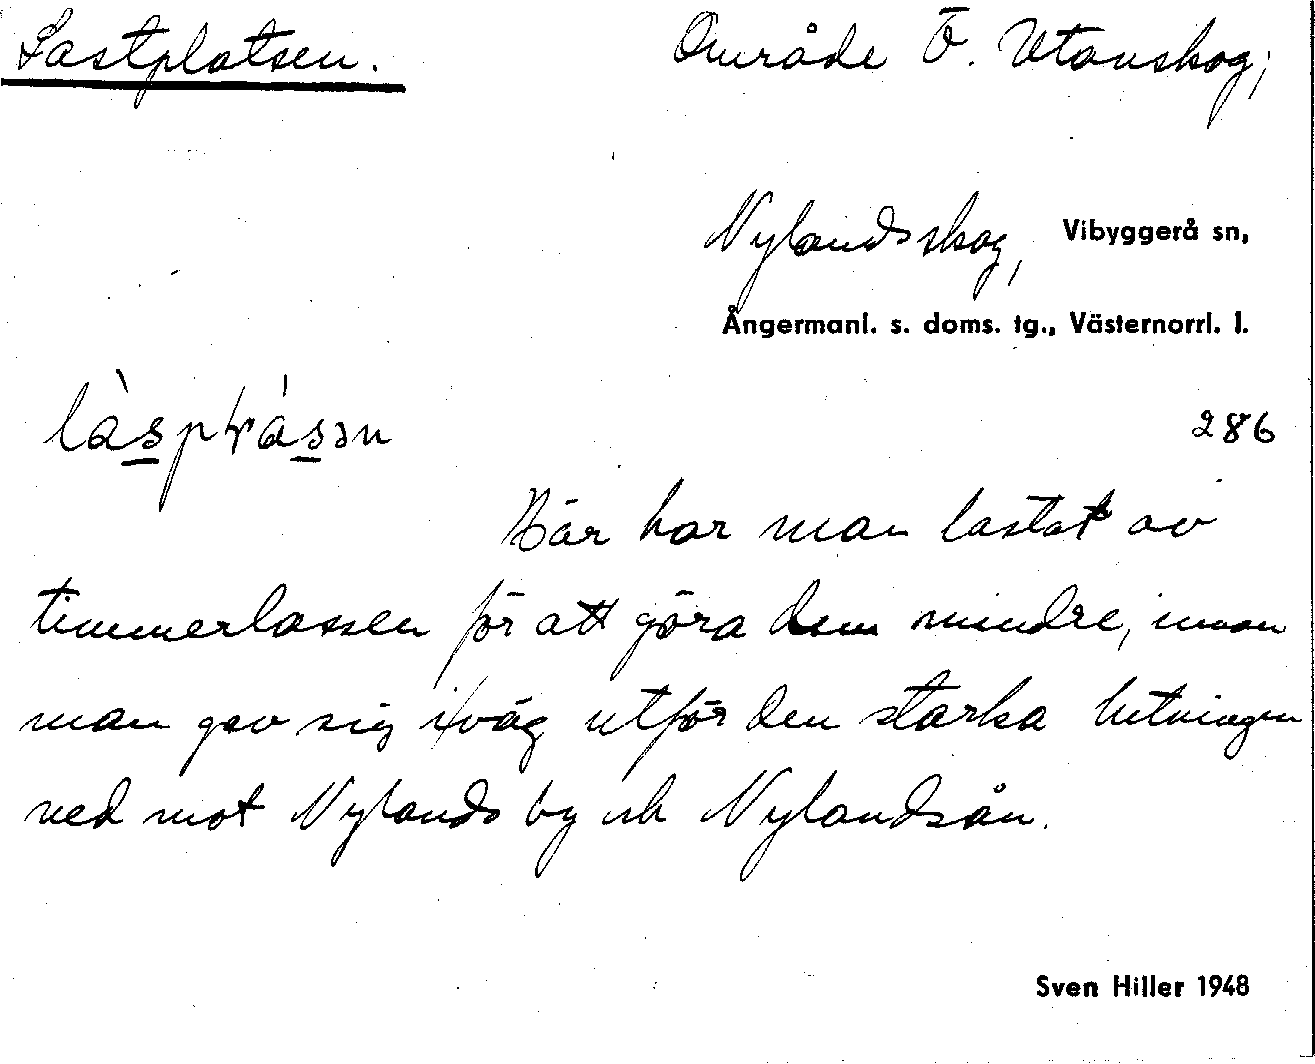 Lastplatsen. Område Ö. Utanskog;
Nylandsskog, Vibyggerå sn,
Ångermanl. s. doms. tg., Västernorrl. l.
286
Här har man lastat av
timmerlassen för att göra dem mindre, innan
man gav sig iväg utför den starka lutningen
ned mot Nylands by och Nylandsån.
Sven Hiller 1948